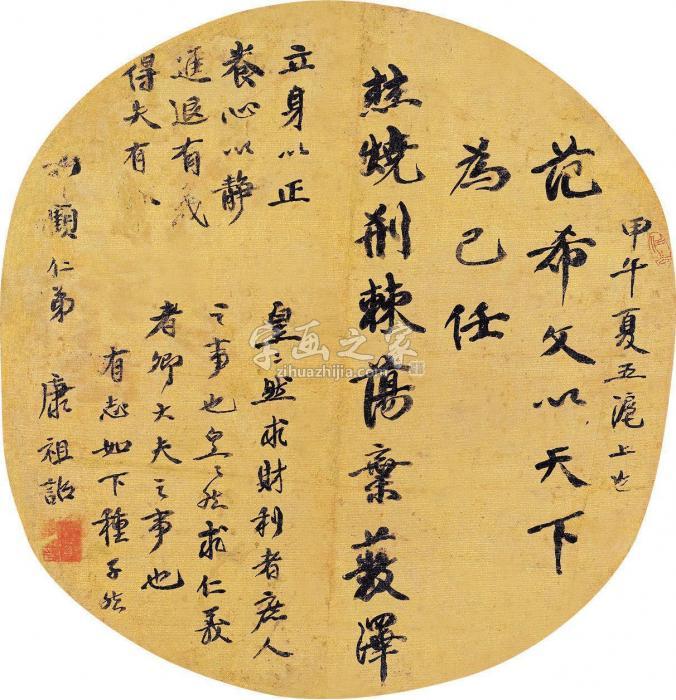 甲午夏五滬上
范希文以天下
為己任
燒荆棘蕩棄澤
立身以正
養心以静
進退有
得失有
皇〻然求財利者庶人
之事也皇〻然求仁義
者卿大夫之事也
有志如下種子然
仁弟 康祖詒
字画之家
zihuazhijia.com